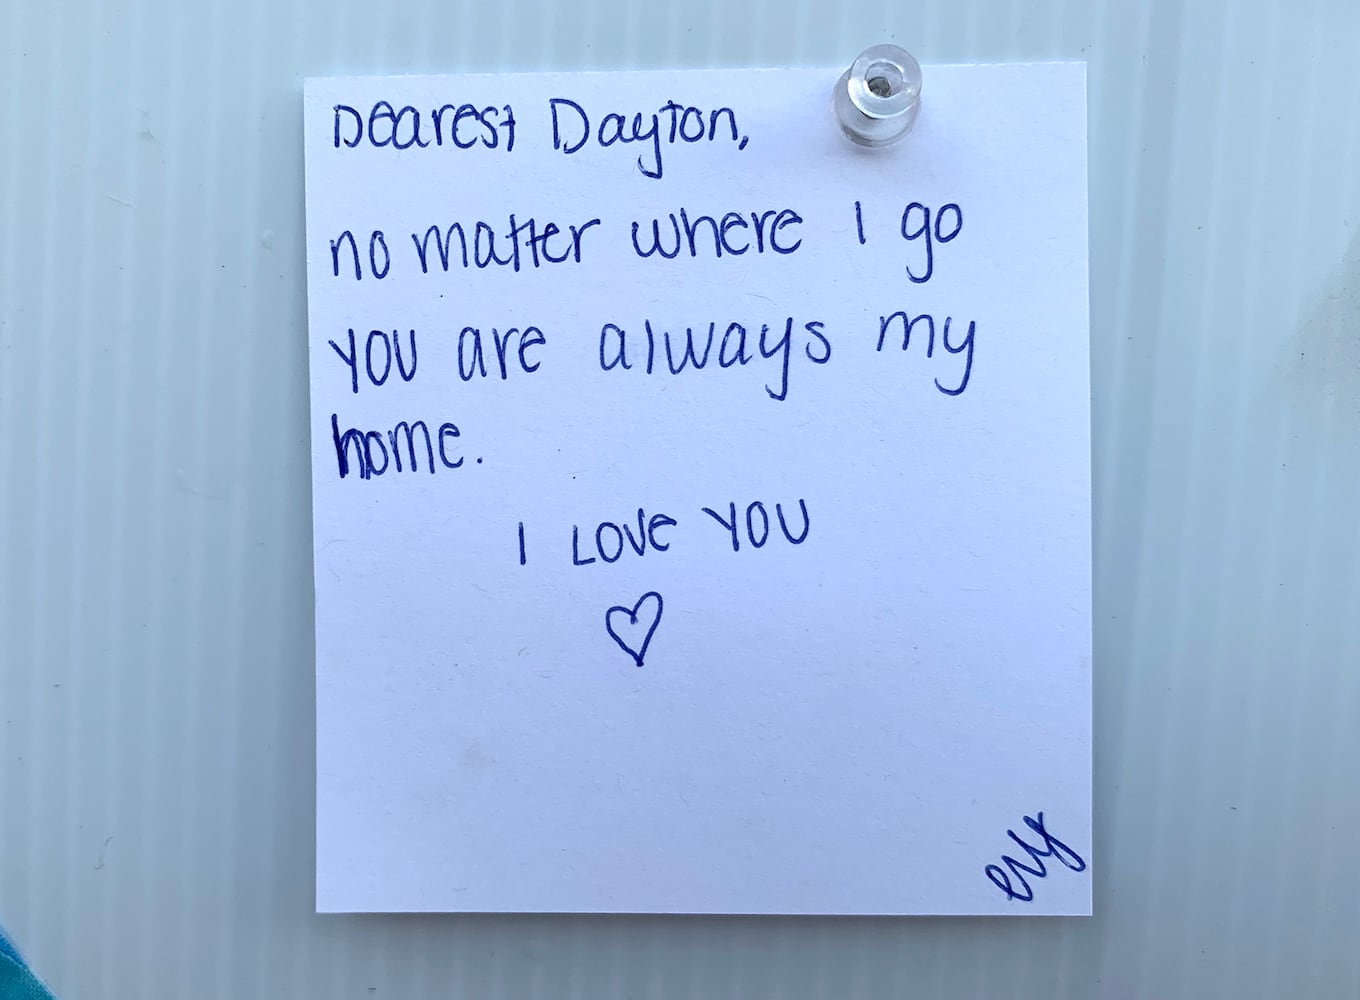 Dearest Dayton,
no matter where I go
you are always my
home.
I LOVE YOU